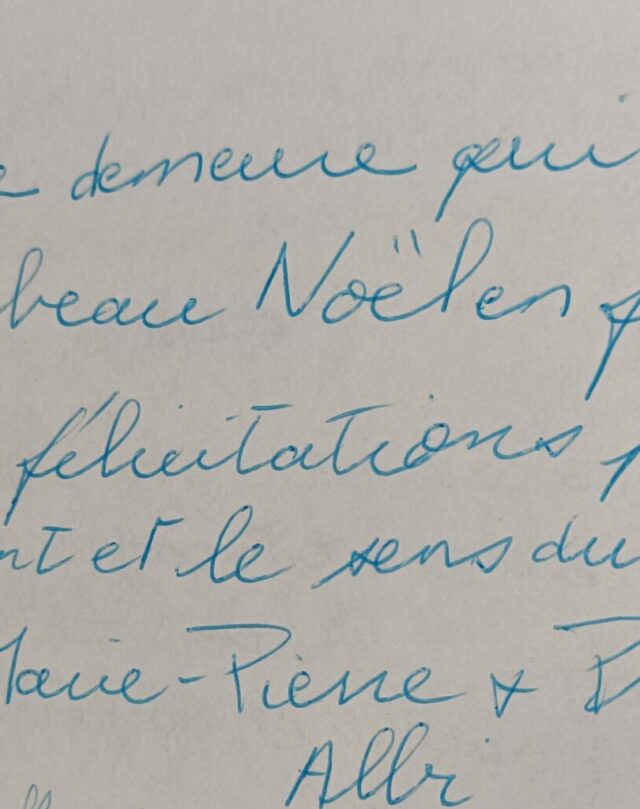 e demeure qui
beau Noël en f
félicitations p
nt et le sens du
Marie-Pierre + P
Albi